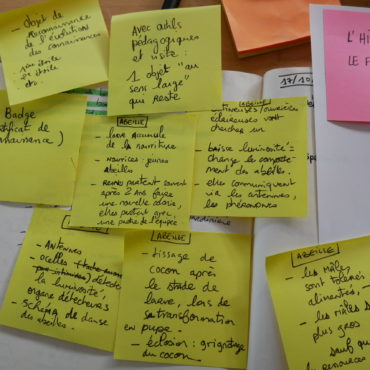 - Objet de
Reconnaissance
de l'évolution
des connaissances
1ère étoile
2e étoile
etc.
Avec outils
pédagogiques
et visite :
1 objet "au
sens large"
qui reste
L'HI
LE F
17/10
Badge
tificat de
nnaissance )
ABEILLE
- larve accumule
de la nourriture
- nourrices : jeunes
abeilles
- Reines partent souvent
après 2 ans faire
une nouvelle colonie,
elles partent avec
une partie de l'équipe
ABEILLE
éclaireuses vont
chercher un
- baisse luminosité :
change le comporte-
ment des abeilles.
- elles communiquent
via les antennes,
les phéromones
ABEILLE
- ANTENNES
- ocelles
la luminosité,
organe détecteurs
- Schéma de danse
des abeilles.
ABEILLE
- tissage de
cocon après
le stade de
larve, lors de
sa transformation
en pupe.
- éclosion : grignotage
du cocon.
ABEILLE
- les mâles,
sont tolérés
alimentés,
- les mâles s
plus gros
sauf qu
ressources